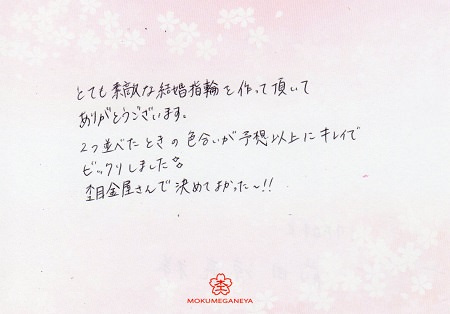 とても素敵な結婚指輪を作って頂いて
ありがとうございます。
2つ並べたときの色合いが予想以上にキレイで
ビックリしました。
杢目金屋さんで決めてよかった〜!!
杢
MOKUMEGANEYA